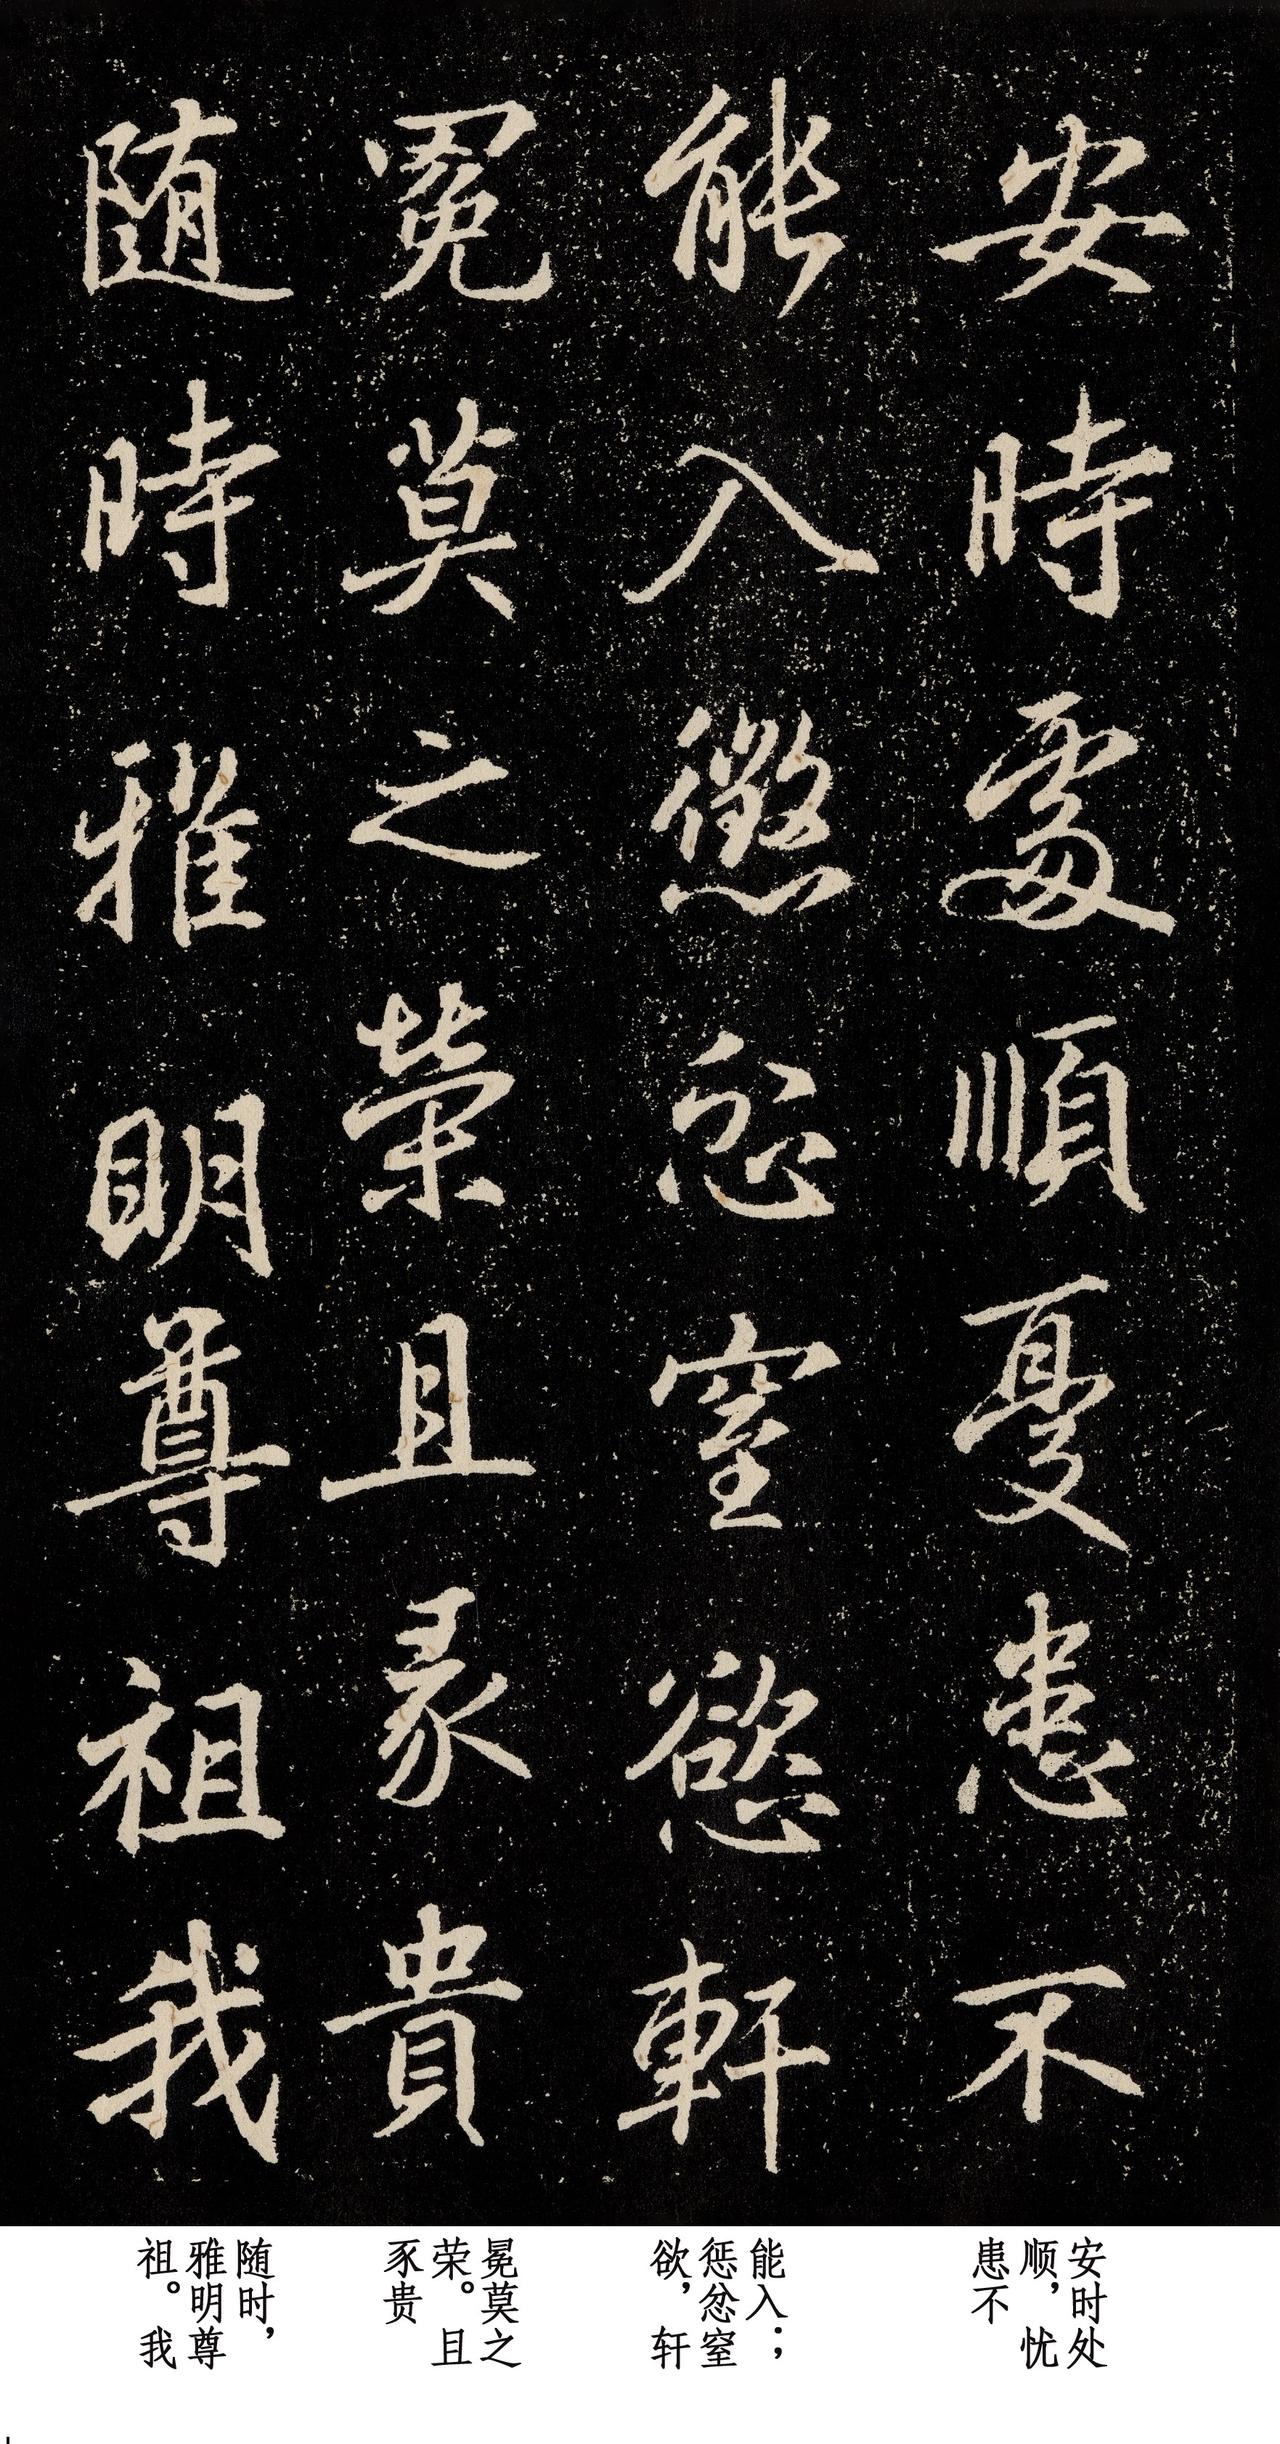 安時處順憂患不
能入懲忿窒慾軒
冕莫之榮且彖貴
随時雅明尊祖我
安时处
顺，忧
患不
能入；
惩忿窒
欲，轩
冕莫之
荣。且
豕贵
随时，
雅明尊
祖。我